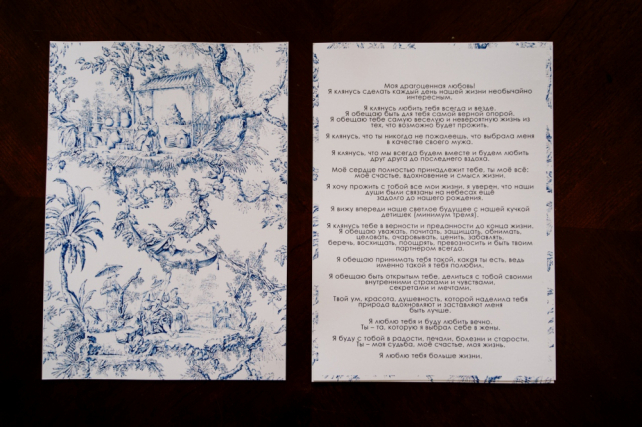 Моя драгоценная любовь!
Я клянусь сделать каждый день нашей жизни необычайно
интересным.
Я клянусь любить тебя всегда и везде.
Я обещаю быть для тебя самой верной опорой.
Я обещаю тебе самую веселую и невероятную жизнь из
тех, что возможно будет прожить.
Я клянусь, что ты никогда не пожалеешь, что выбрала меня
в качестве своего мужа.
Я клянусь, что мы всегда будем вместе и будем любить
друг друга до последнего вздоха.
Моё сердце полностью принадлежит тебе, ты моё всё:
моё счастье, вдохновение и смысл жизни.
Я хочу прожить с тобой все мои жизни, я уверен, что наши
души были связаны на небесах ещё
задолго до нашего рождения.
Я вижу впереди наше светлое будущее с нашей кучкой
детишек (минимум тремя).
Я клянусь тебе в верности и преданности до конца жизни.
Я обещаю уважать, почитать, защищать, обнимать,
целовать, очаровывать, ценить, забавлять,
беречь, восхищать, поощрять, превозносить и быть твоим
партнером всегда.
Я обещаю принимать тебя такой, какая ты есть, ведь
именно такой я тебя полюбил.
Я обещаю быть открытым тебе, делиться с тобой своими
внутренними страхами и чувствами,
секретами и мечтами.
Твой ум, красота, душевность, которой наделила тебя
природа вдохновляют и заставляют меня
быть лучше.
Я люблю тебя и буду любить вечно.
Ты – та, которую я выбрал себе в жены.
Я буду с тобой в радости, печали, болезни и старости.
Ты – моя судьба, моё счастье, моя жизнь.
Я люблю тебя больше жизни.